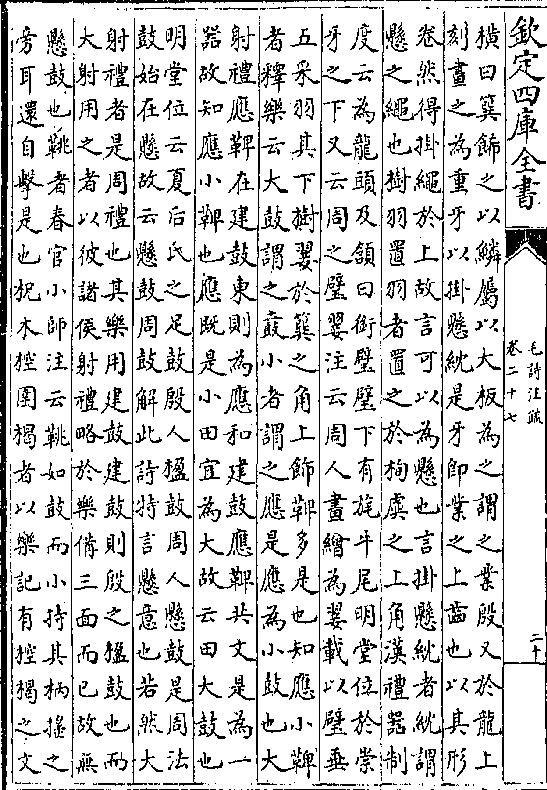 欽定四庫全書
毛詩注疏
卷二十七
二十
橫曰簨飾之以鱗屬以大板為之謂之業殷又於龍上
刻畫之為重牙以掛懸紞是牙即業之上齒也以其形
卷然得掛繩於上故言可以為懸也言掛懸紞者紞謂
懸之繩也樹羽置羽者置之於栒虡之上角漢禮器制
度云為龍頭及頷口銜璧璧下有旄牛尾明堂位於崇
牙之下又云周之璧翣注云周人畫繒為翣載以璧垂
五采羽其下樹翣於簨之角上飾鞞多是也知應小鞞
者釋樂云大鼓謂之鼖小者謂之應是應為小鼓也大
射禮應鞞在建鼓東則為應和建鼓應鞞共文是為一
器故知應小鞞也應既是小田宜為大故云田大鼓也
明堂位云夏后氏之足鼓殷人楹鼓周人懸鼓是周法
鼓始在懸故云懸鼓周鼓解此詩特言懸意也若然大
射禮者是周禮也其樂用建鼓建鼓則殷之楹鼓也而
大射用之者以彼諸侯射禮略於樂備三面而已故無
懸鼓也鞉者春官小師注云鞉如鼓而小持其柄搖之
旁耳還自擊是也柷木椌圉楬者以樂記有椌楬之文